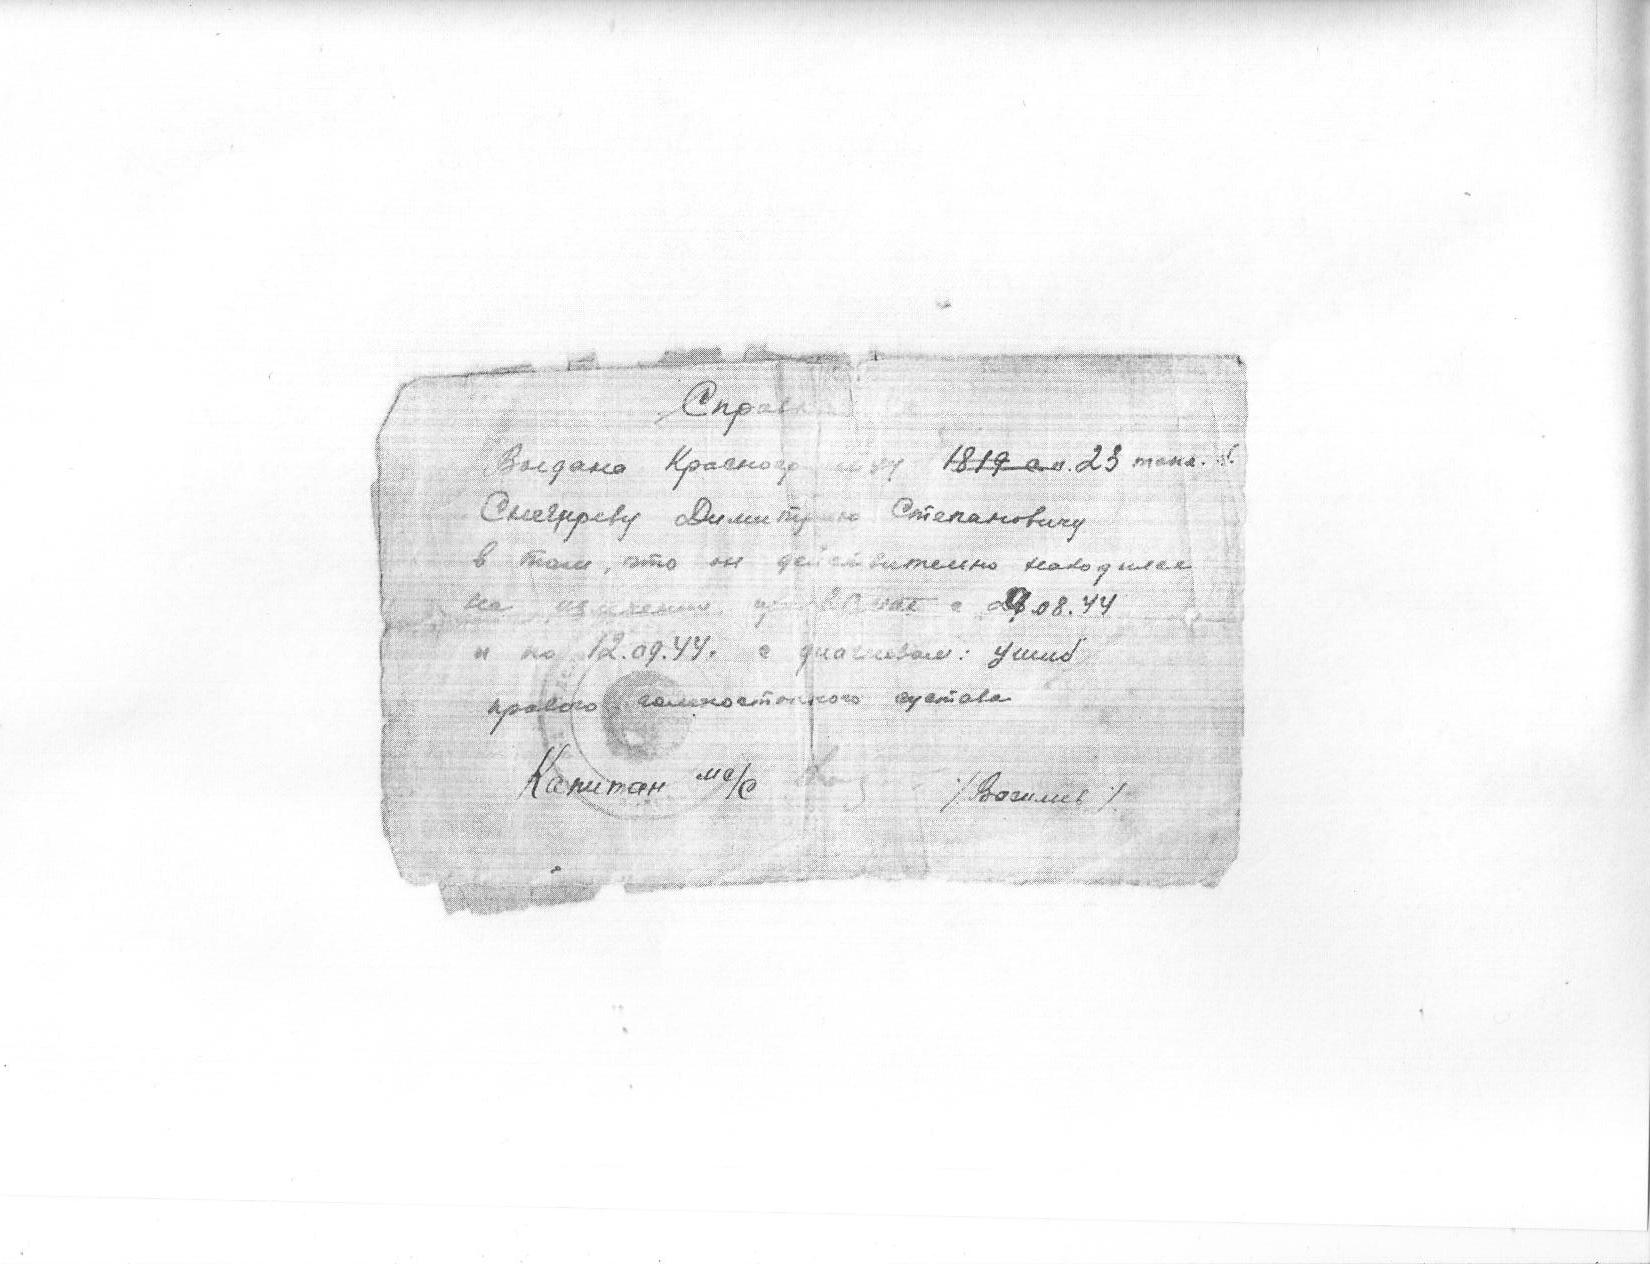 Справка
Выдана Красноарм 1819 с.п. 23 танк. б.
Снегиреву Димитрию Степановичу
в том, что он действительно находился
на излечении с 29.08.44
и по 12.09.44. с диагнозом: ушиб
правого голеностопного сустава
Капитан м/с /Васильев/